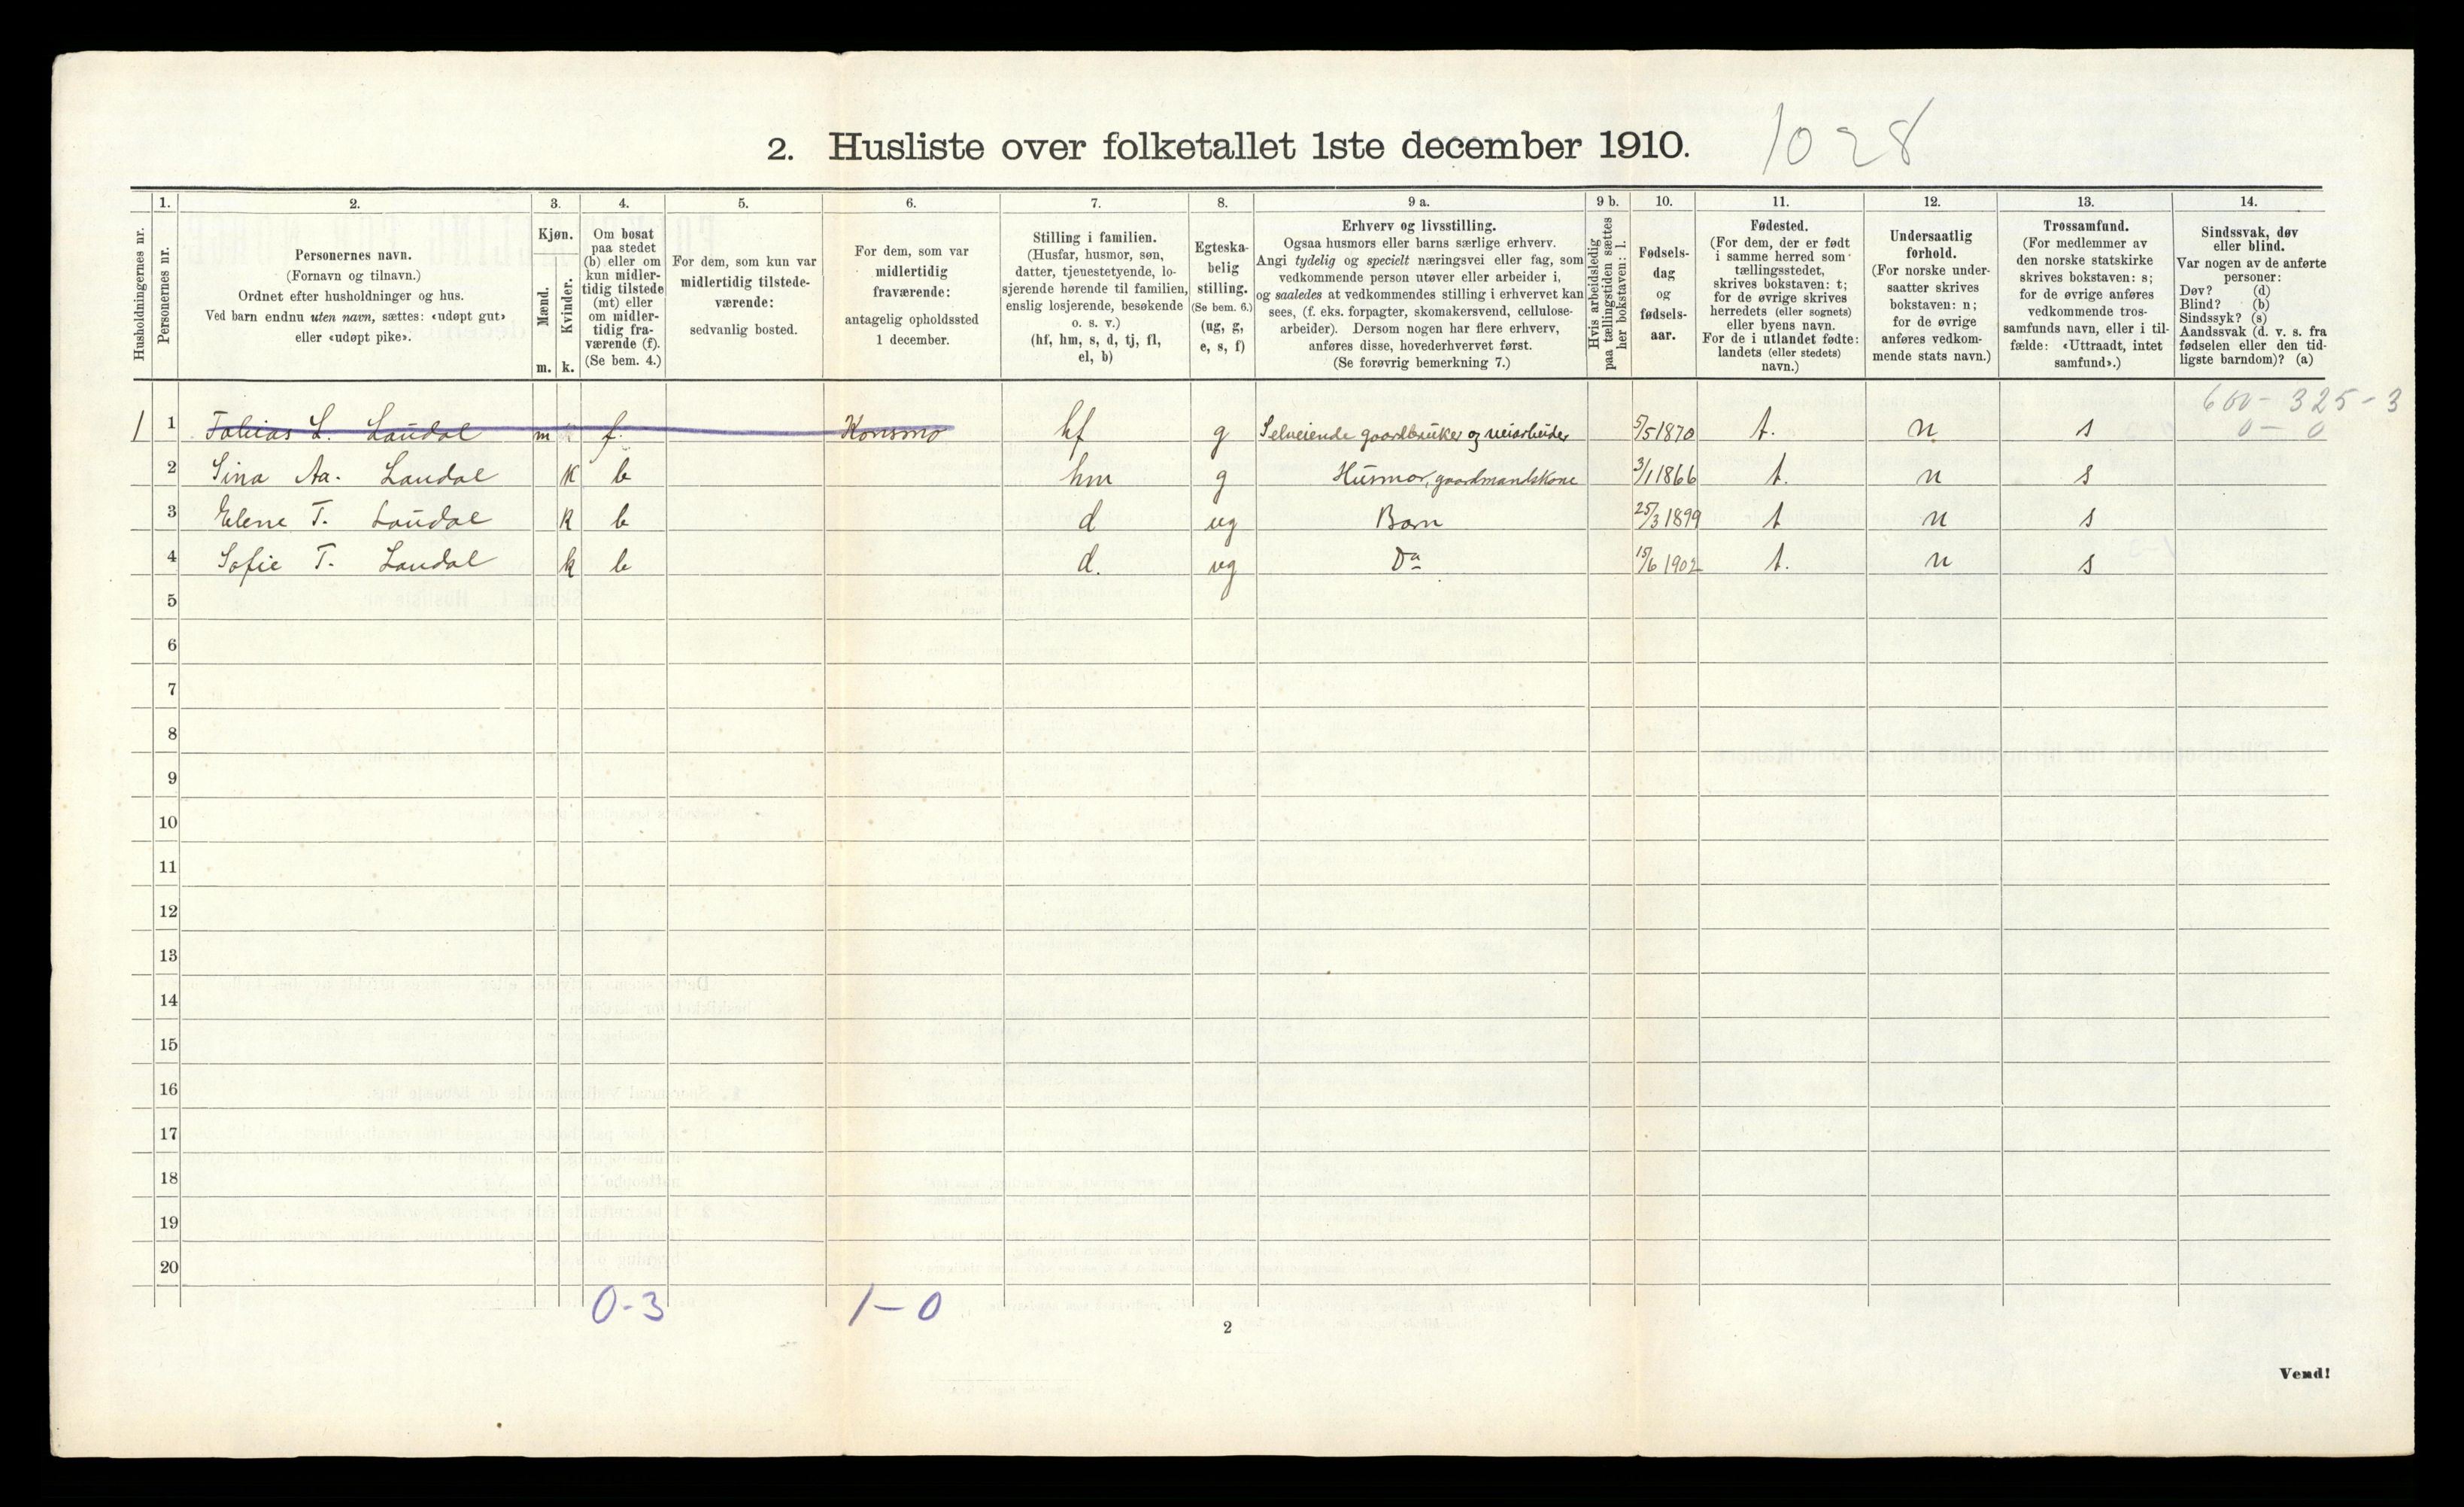 2. Husliste over folketallet 1ste december 1910. 1028
Husholdningernes nr.
1.
Personernes nr.
2.
Personernes navn.
(Fornavn og tilnavn.)
Ordnet efter husholdninger og hus.
Ved barn endnu uten navn, sættes: «udøpt gut»
eller «udøpt pike».
3.
Kjøn.
Mænd.
Kvinder.
m. k.
4.
Om bosat
paa stedet
(b) eller om
kun midler-
tidig tilstede
(mt) eller
om midler-
tidig fra-
værende (f).
(Se bem. 4.)
5.
For dem, som kun var
midlertidig tilstede-
værende:
sedvanlig bosted.
6.
For dem, som var
midlertidig
fraværende:
antagelig opholdssted
1 december.
7.
Stilling i familien.
(Husfar, husmor, søn,
datter, tjenestetyende, lo-
sjerende hørende til familien,
enslig losjerende, besøkende
o. s. v.)
(hf, hm, s, d, tj, fl,
el, b)
8.
Egteska-
belig
stilling.
(Se bem. 6.)
(ug, g,
e, s, f)
9 a.
Erhverv og livsstilling.
Ogsaa husmors eller barns særlige erhverv.
Angi tydelig og specielt næringsvei eller fag, som
vedkommende person utøver eller arbeider i,
og saaledes at vedkommendes stilling i erhvervet kan
sees, (f. eks. forpagter, skomakersvend, cellulose-
arbeider). Dersom nogen har flere erhverv,
anføres disse, hovederhvervet først.
(Se forøvrig bemerkning 7.)
9 b.
Hvis arbeidsledig
paa tællingstiden sættes
her bokstaven: l.
10.
Fødsels-
dag
og
fødsels-
aar.
11.
Fødested.
(For dem, der er født
i samme herred som
tællingsstedet,
skrives bokstaven: t;
for de øvrige skrives
herredets (eller sognets)
eller byens navn.
For de i utlandet fødte:
landets (eller stedets)
navn.)
12.
Undersaatlig
forhold.
(For norske under-
saatter skrives
bokstaven: n;
for de øvrige
anføres vedkom-
mende stats navn.)
13.
Trossamfund.
(For medlemmer av
den norske statskirke
skrives bokstaven: s;
for de øvrige anføres
vedkommende tros-
samfunds navn, eller i til-
fælde: «Uttraadt, intet
samfund».)
14.
Sindssvak, døv
eller blind.
Var nogen av de anførte
personer:
Døv? (d)
Blind? (b)
Sindssyk? (s)
Aandssvak (d. v. s. fra
fødselen eller den tid-
ligste barndom)? (a)
600 - 325 - 3
0 - 0
1 1 Tobias L. Laudal m f. Konsmo hf g Selveiende gaardbruker og veiarbeider 5/5 1870 t. n s
2 Sina Aa. Laudal k b hm g Husmor, gaardmandskone 3/1 1866 t. n s
3 Elene T. Laudal k b d ug Barn 25/3 1899 t n s
4 Sofie T. Laudal k b d. ug Da 15/6 1902 t. n s
5
6
7
8
9
10
11
12
13
14
15
16
17
18
19
20
0-3 1-0
2
Vend!